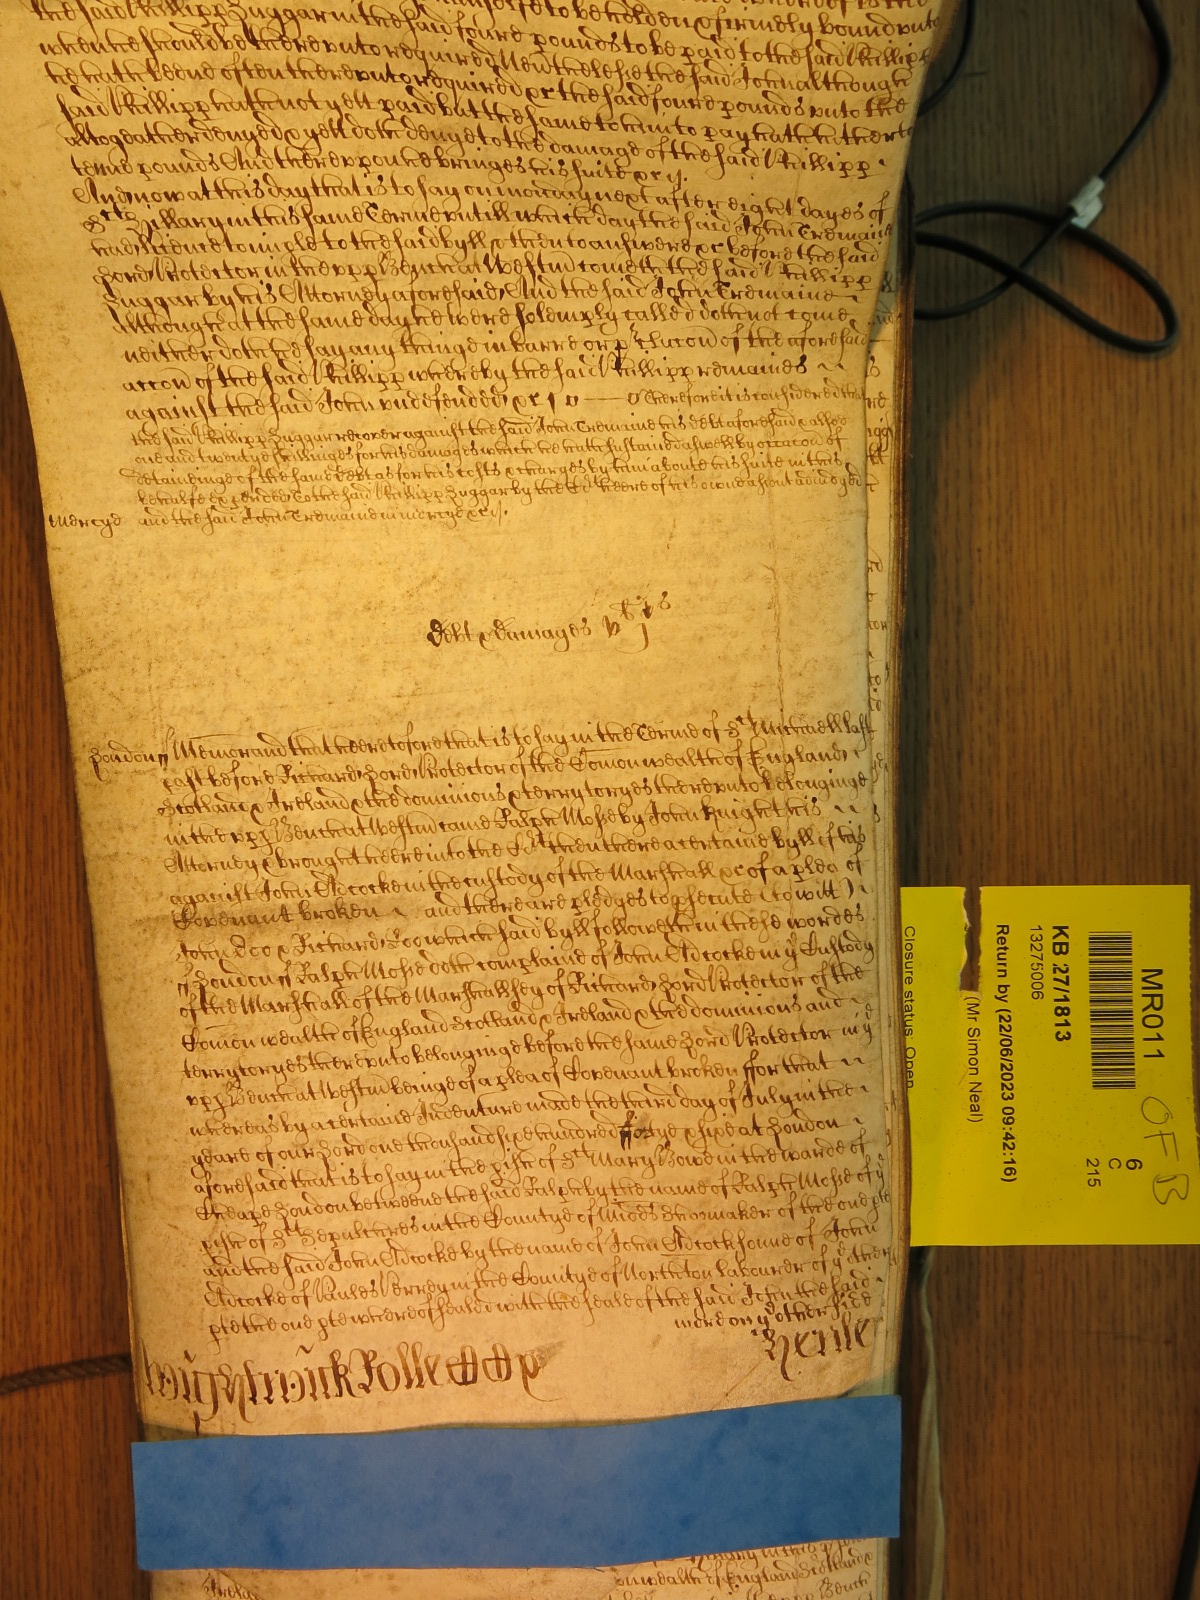 the said Phillipp Zuggar in the said foure pounds to be paid to the said Phillipp
when he should be thereunto required Neverthelesse the said John although
he hath beene often thereunto required &c the said foure pounds unto the
said Phillipp hath not yett paid but the same to him to pay hath hitherto
altogeather denyed & yett doth denye to the damage of the said Phillipp
tenne pounds And thereuppon he bringes his suite &c
And now att this day that is to say on monday next after eight dayes of
St Hillary in this same Terme untill which day the said John Tremaine
had Licence to imple to the said byll & then to answere &c before the said
Lord Protector in the upp Bench at Westm cometh the said Phillipp
Zuggar by his Attorney aforesaid And the said John Tremaine
Although att the same day he were solemply called doth not come
neither doth he say any thinge in barre or p the accon of the aforesaid
accon of the said Phillipp whereby the said Phillipp remaines
against the said John undefended &c Therefore it is considered that
the said Phillipp Zuggar recover against the said John Tremaine his debt aforesaid & allsoe
one and twentye shillinges for his damages which he hath sustained aswell by occacon of
detaininge of the same debt as for his costs & charges by him about his suite in this
behalfe expended to the said Phillipp Zuggar by the Court heere of his owne assent adiudged
Mercye and the said John Tremaine in mercye &c
Debt & Damages v li j s
London Memorand that heretofore that is to say in the Terme of St Michaell last
past before Richard Lord Protector of the Comon wealth of England
Scotland & Ireland & the dominions & terrytoryes thereunto belonginge
in the upp Bench at Westm came Ralph Mosse by John Knight his
Attorney & brought heere into the Court then there a certaine byll of his
against John Adcocke in the custody of the Marshall &c of a plea of
Covenant broken and there are pledges to psecute (to witt)
John Doo & Richard Roo which said byll followeth in these wordes
London Ralph Mosse doth complaine of John Adcocke in ye Custody
of the Marshall of the Marshallsey of Richard Lord Protector of the
Comon wealth of England Scotland & Ireland & the dominions and
terrytoryes thereunto belonginge before the same Lord Protector in ye
upp Bench at Westm beinge of a plea of Covenant broken ffor that
whereas by a certaine Indenture made the third day of July in the
yeare of our Lord one thousand sixe hundred fortye & sixe at London
aforesaid that is to say in the pishe of St Mary Bowe in the warde of
Cheape London betweene the said Ralph by the name of Ralph Mosse of ye
pishe of St Sepulchres in the Countye of Midds Shoomaker of the one pte
and the said John Adcocke by the name of John Adcock sonne of John
Adcocke of Paules Perrey in the Countye of Northton Labourer of ye other
pte the one pte whereof seald with the seale of the said John the said
more on ye other side
Rolle
Herne
MR011
6
C
215
KB 27/1813
13275006
Return by (22/06/2023 09:42:16)
(Mr Simon Neal)
Closure status: Open
OFB